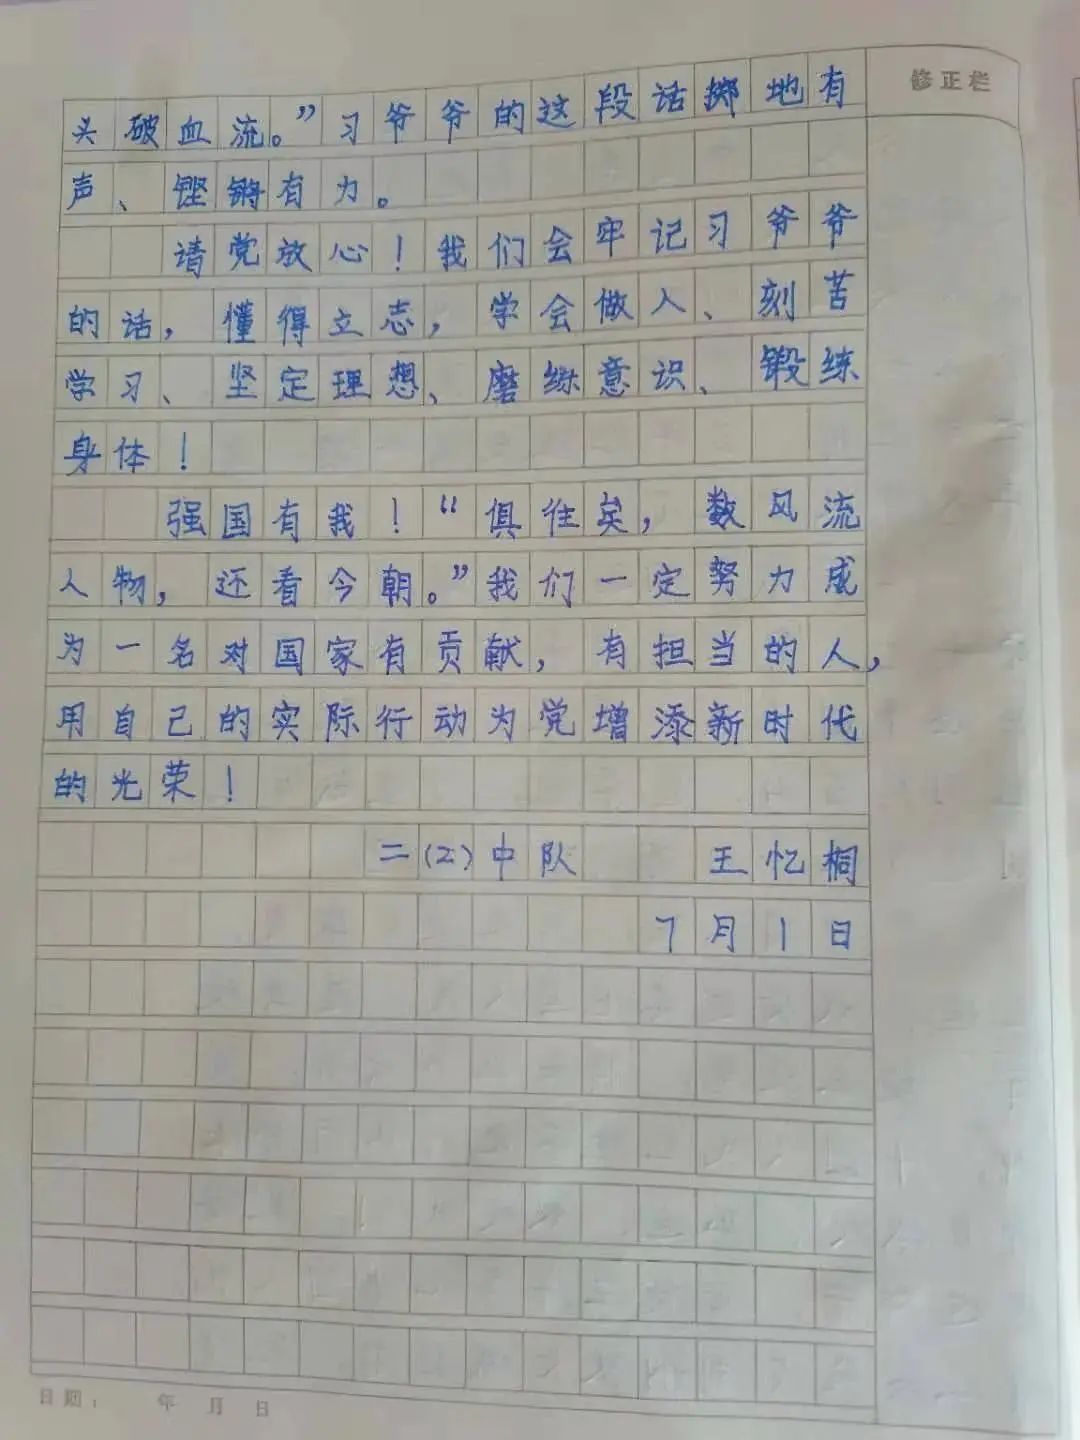 修正栏
头破血流。”习爷爷的这段话掷地有
声、铿锵有力。
请党放心！我们会牢记习爷爷
的话，懂得立志，学会做人、刻苦
学习、坚定理想、磨练意识、锻练
身体！
强国有我！“俱往矣，数风流
人物，还看今朝。”我们一定努力成
为一名对国家有贡献，有担当的人，
用自己的实际行动为党增添新时代
的光荣！
二(2)中队 王忆桐
7月1日
日期： 年 月 日